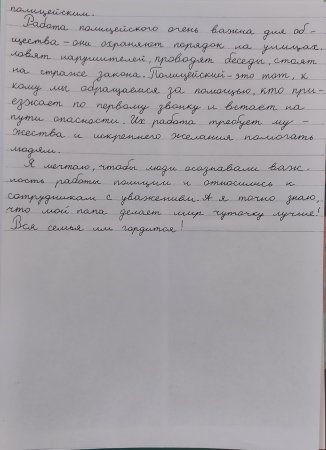 полицейским.
Работа полицейского очень важна для об-
щества – они охраняют порядок на улицах,
ловят нарушителей, проводят беседы, стоят
на страже закона. Полицейский – это тот, к
кому мы обращаемся за помощью, кто при-
езжает по первому звонку и встаёт на
пути опасности. Их работа требует му-
жества и искреннего желания помогать
людям.
Я мечтаю, чтобы люди осознавали важ-
ность работы полиции и относились к
сотрудникам с уважением. А я точно знаю,
что мой папа делает мир чуточку лучше!
Вся семья им гордится!